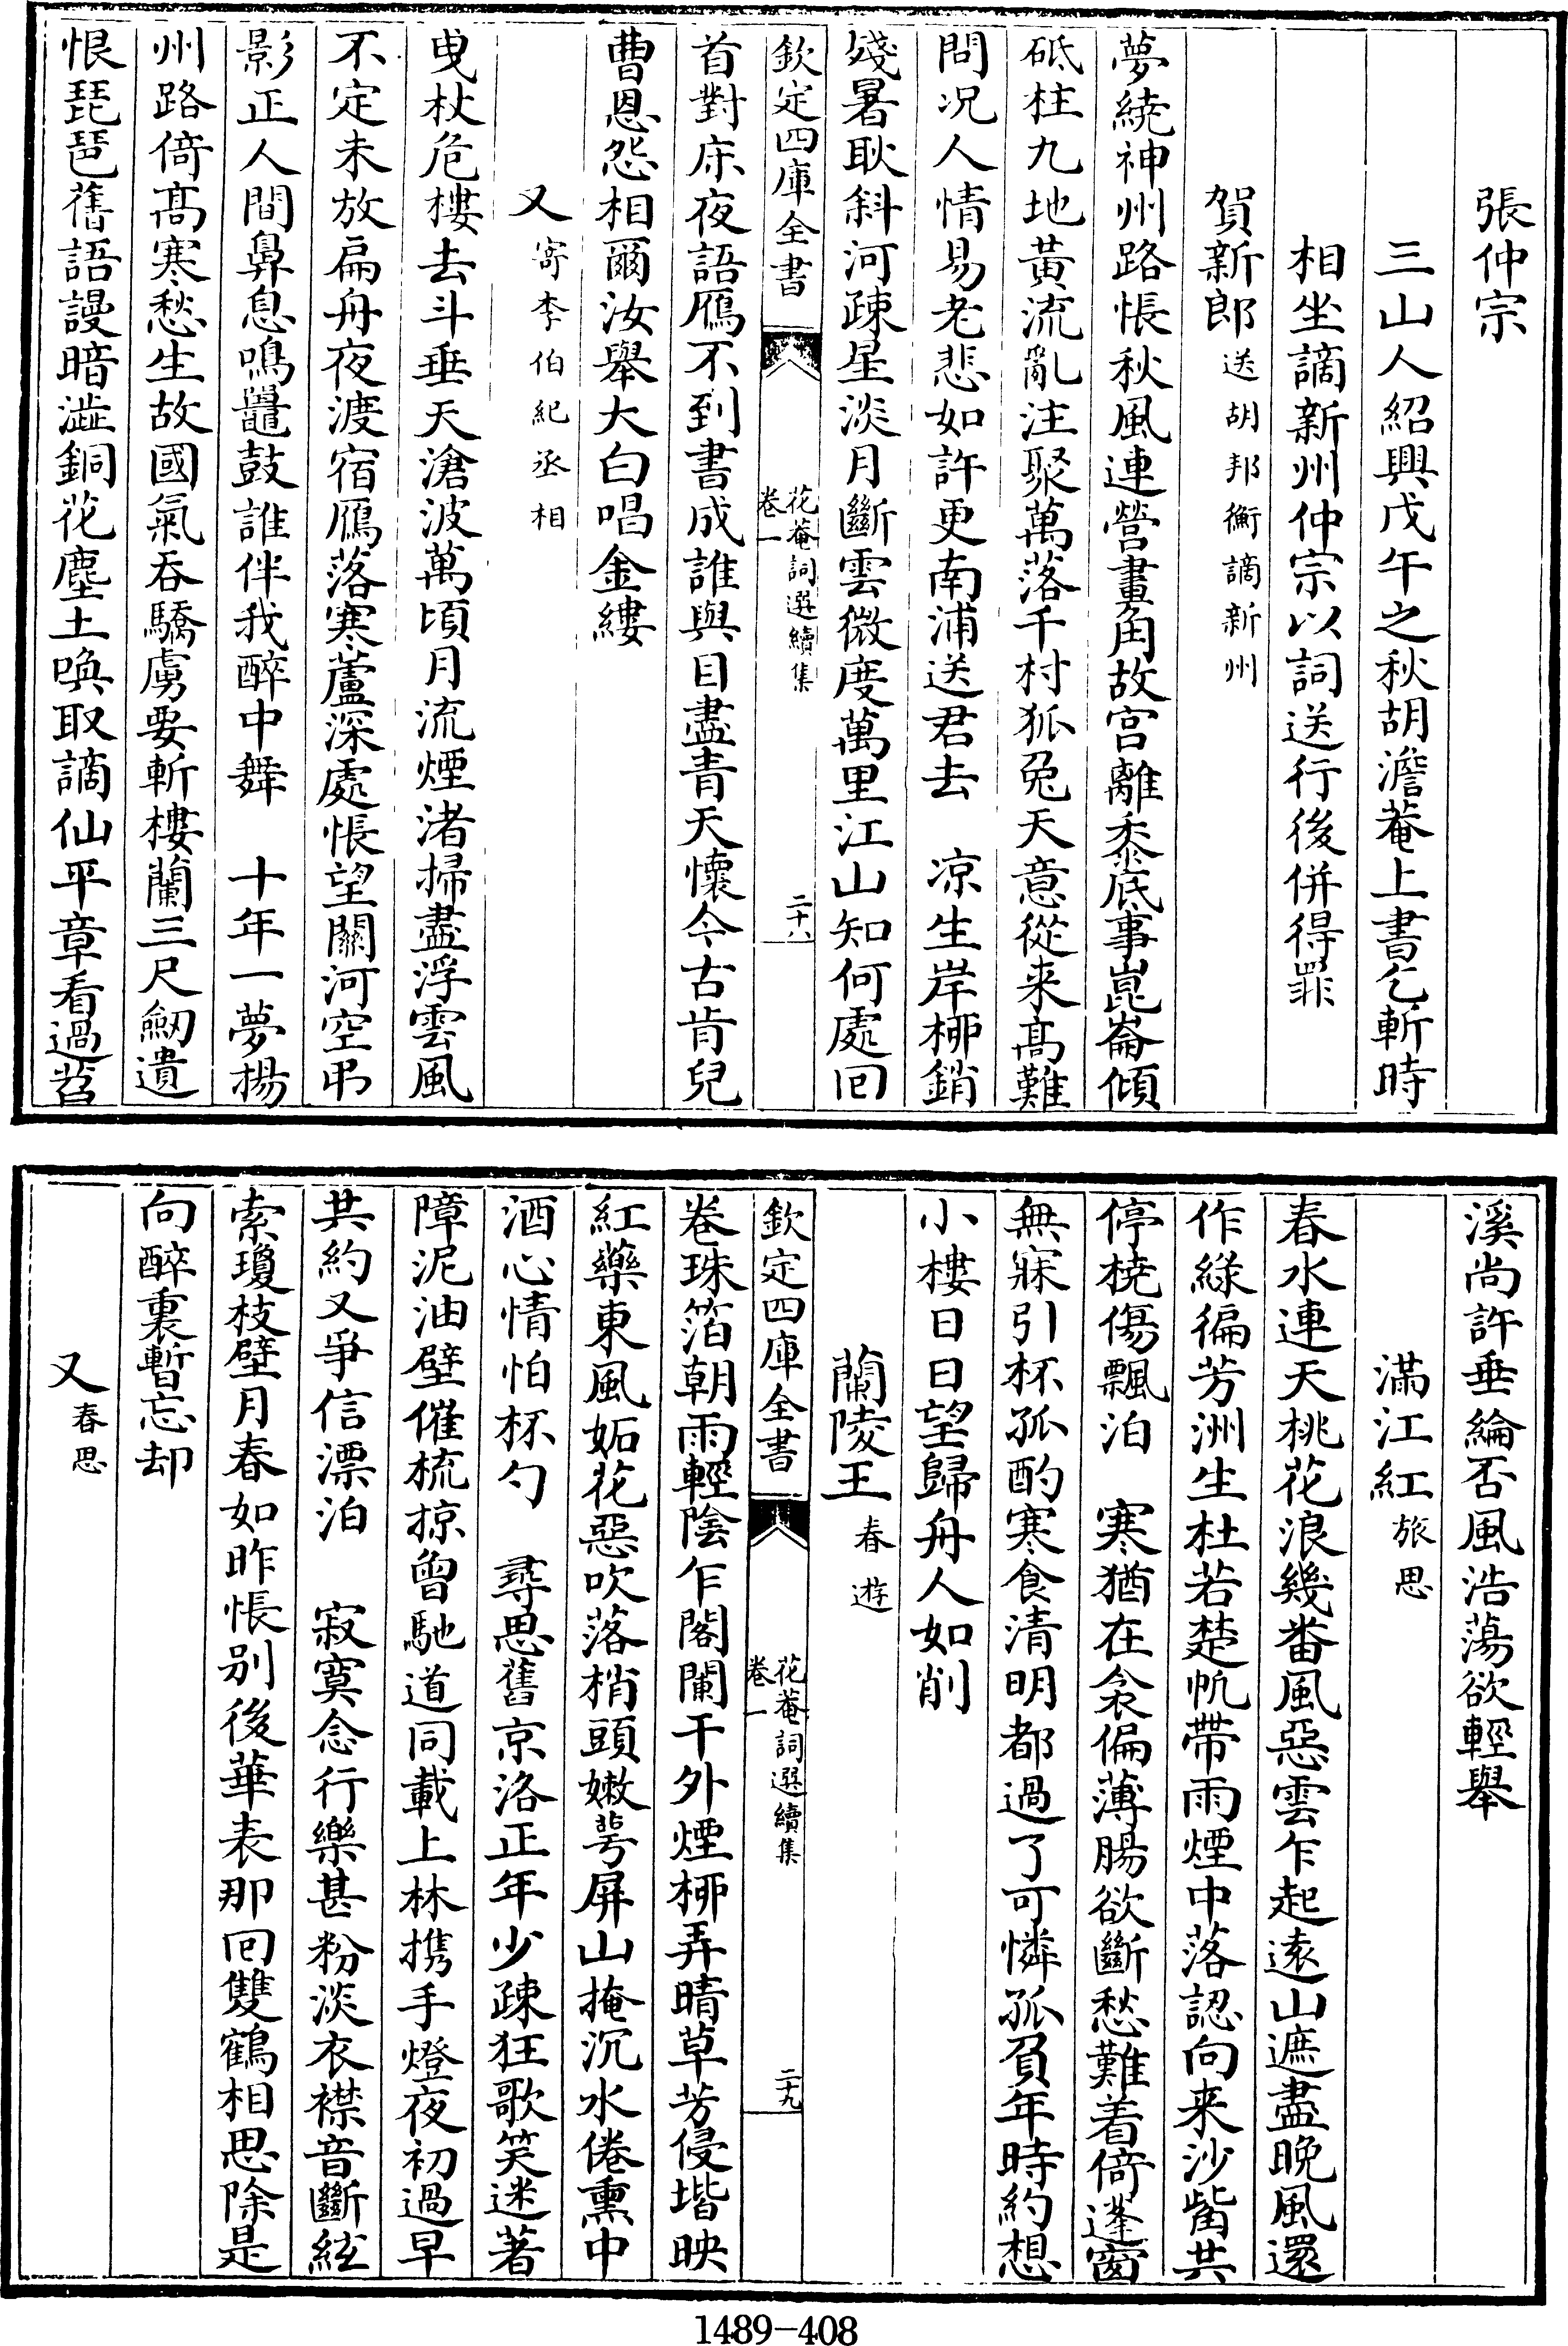 張仲宗
三山人紹興戊午之秋胡澹菴上書乞斬時
相坐謫新州仲宗以詞送行後併得罪
賀新郎送胡邦衡謫新州
夢繞神州路悵秋風連營畫角故宮離黍底事崑崙傾
砥柱九地黃流亂注聚萬落千村狐兔天意從来髙難
問况人情易老悲如許更南浦送君去　凉生岸桺銷
殘暑耿斜河疎星淡月斷雲微度萬里江山知何處囘
欽定四庫全書
花菴詞選續集
卷一
二十八
首對牀夜語鴈不到書成誰與目盡青天懷今古肯兒
曹恩怨相爾汝舉大白唱金縷
又寄李伯紀丞相
曳杖危樓去斗垂天滄波萬頃月流煙渚掃盡浮雲風
不定未放扁舟夜渡宿鴈落寒蘆深處悵望關河空弔
影正人間鼻息鳴鼉鼓誰伴我醉中舞　十年一夢揚
州路倚髙寒愁生故國氣吞驕虜要斬樓蘭三尺劒遺
恨琵琶舊語謾暗澁銅花塵土喚取謫仙平章看過苕
溪尚許垂綸否風浩蕩欲輕舉
滿江紅旅思
春水連天桃花浪幾番風惡雲乍起遠山遮盡晚風還
作緑徧芳洲生杜若楚帆帶雨煙中落認向来沙觜共
停橈傷飄泊　寒猶在衾偏薄腸欲斷愁難着倚蓬窗
無寐引杯孤酌寒食清明都過了可憐孤負年時約想
小樓日日望歸舟人如削
蘭陵王春遊
欽定四庫全書
花菴詞選續集
卷一
二十九
卷珠箔朝雨輕陰乍閣闌干外煙桺弄晴草芳侵堦映
紅藥東風妬花惡吹落梢頭嫩萼屏山掩沉水倦熏中
酒心情怕杯勺　尋思舊京洛正年少疎狂歌笑迷著
障泥油壁催梳掠曾馳道同載上林携手燈夜初過早
共約又爭信漂泊　寂寞念行樂甚粉淡衣襟音斷絃
索瓊枝壁月春如昨悵别後華表那囘雙鶴相思除是
向醉裏暫忘却
又春思
1489-408